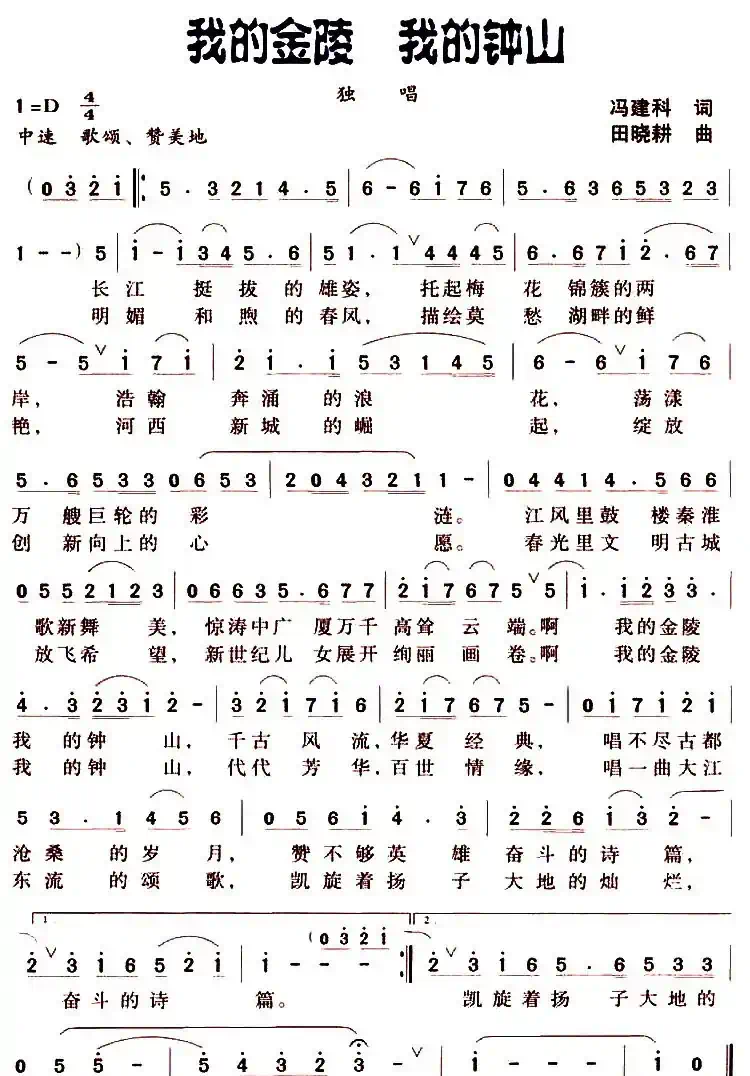 我的金陵 我的钟山
独 唱
1=D 4/4
冯建科 词
中速 歌颂、赞美地
田晓耕 曲
(0 3 2 1 5 . 3 2 1 4 . 5 6 - 6 1 7 6 5 . 6 3 6 5 3 2 3
1 - - ) 5 1 - 1 3 4 5 . 6 5 1 . 1 ∨ 4 4 4 5 6 . 6 7 1 2 . 6 7
长江 挺 拔 的 雄姿, 托起梅 花 锦簇的两
明媚 和 煦 的 春风, 描绘莫 愁 湖畔的鲜
5 - 5 ∨ 1 7 1 2 1 . 1 5 3 1 4 5 6 - 6 ∨ 1 7 6
岸, 浩翰 奔涌 的浪 花, 荡漾
艳, 河西 新城 的崛 起, 绽放
5 . 6 5 3 3 0 6 5 3 2 0 4 3 2 1 1 - 0 4 4 1 4 . 5 6 6
万 艘巨轮的 彩 涟。 江风里鼓 楼秦淮
创 新向上的 心 愿。 春光里文 明古城
0 5 5 2 1 2 3 0 6 6 3 5 . 6 7 7 2 1 7 6 7 5 5 ∨ 5 1 . 1 2 3 3 .
歌新舞 美, 惊涛中广 厦万千 高耸 云 端。啊 我的金陵
放飞希 望, 新世纪儿 女展开 绚丽 画 卷。啊 我的金陵
4 . 3 2 3 1 2 - 3 2 1 7 1 6 2 1 7 6 7 5 - 0 1 7 1 2 1
我 的钟 山, 千古 风 流,华夏 经 典, 唱不尽古都
我 的钟 山, 代代 芳 华,百世 情 缘, 唱一曲大江
5 3 . 1 4 5 6 0 5 6 1 4 . 3 2 2 6 1 3 2 -
沧桑 的岁 月, 赞不够英 雄 奋斗的诗 篇,
东流 的颂 歌, 凯旋着扬 子 大地的灿 烂,
1. (0 3 2 1 2.
2 ∨ 3 1 6 5 2 1 1 - - - 2 ∨ 3 1 6 5 . 6 5 3 3
奋斗的诗 篇。 凯旋着扬 子大地的
0 5 5 - 5 4 3 2 3 - ∨ 1 - - - 1 0